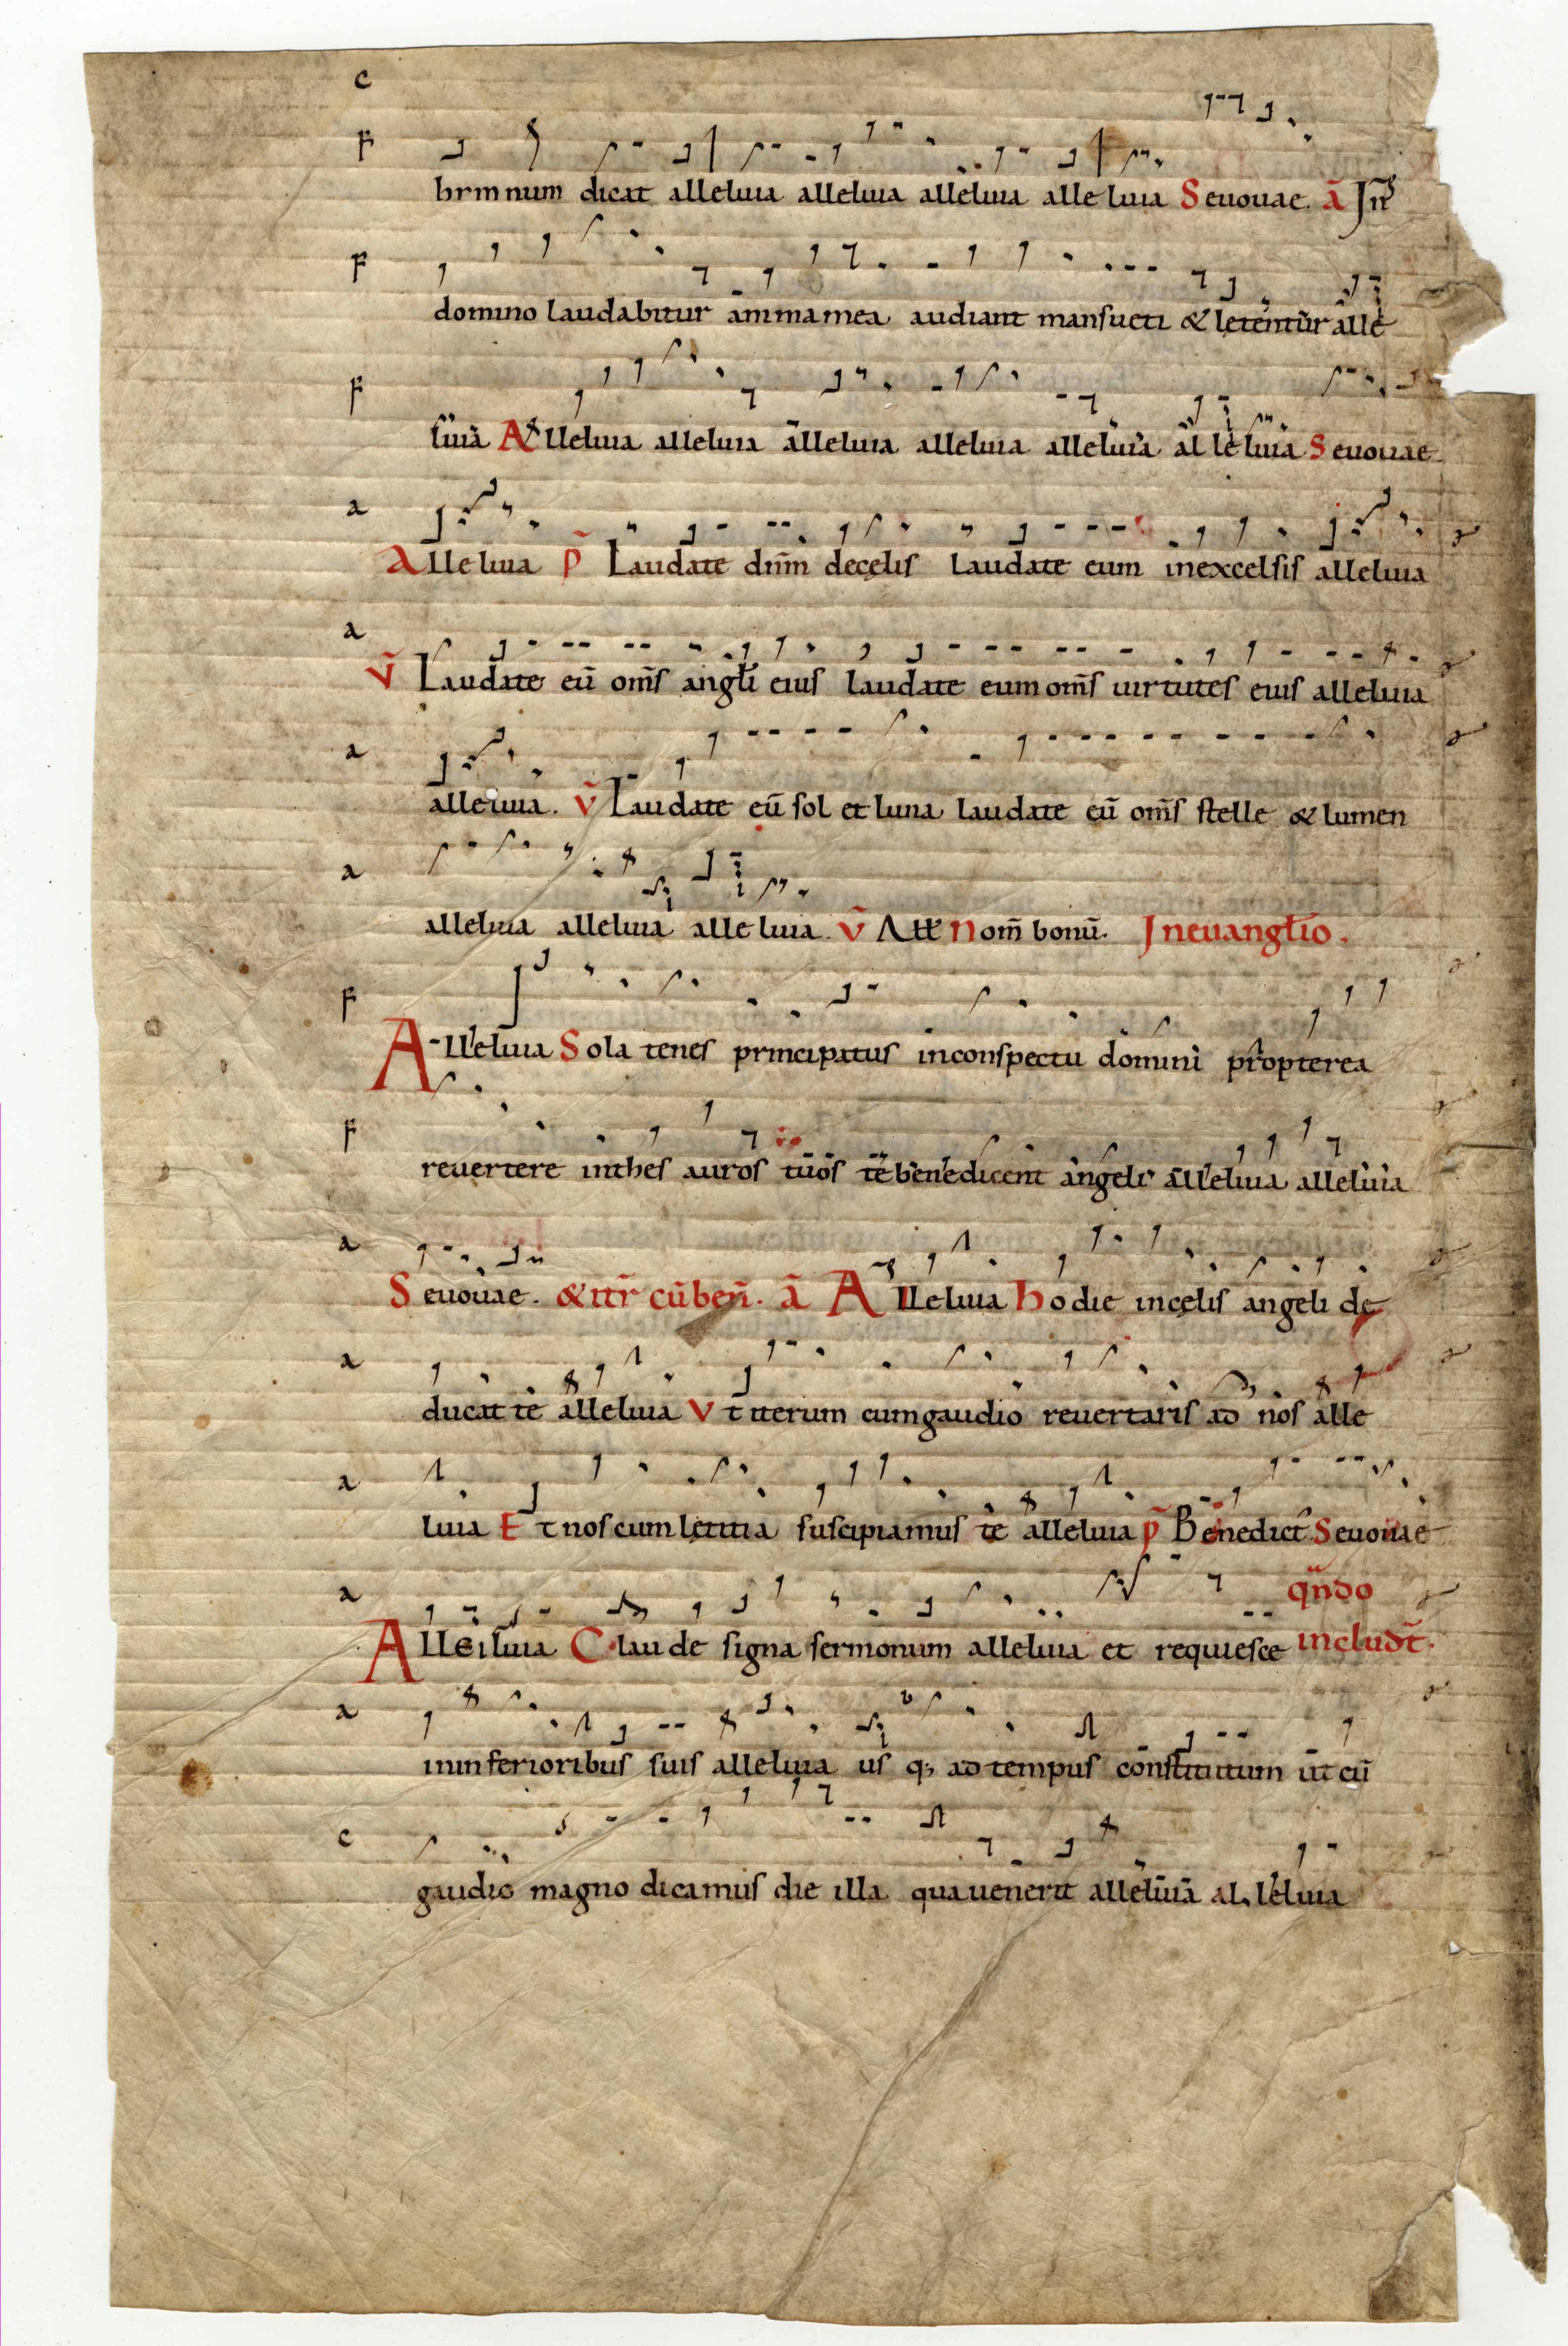 c
F
hrm num dicat alleluia alleluia alleluia alle luia Seuouae. ā Jn
F
domino laudabitur anima mea audiant mansueti & letentur alle
F
luia Alleluia alleluia alleluia alleluia alleluia al le luia Seuouae
a
Alle luia p̄ Laudate dnm̄ decęlis laudate eum inexcelsis alleluia
a
v̄ Laudate eū om̄s angłi eius laudate eum om̄s uirtutes eius alleluia
a
alleluia. v̄ Laudate eū sol et luna laudate eū om̄s stelle & lumen
a
alleluia alleluia alle luia. v̄ Att Nom̄ bonū. Jneuangłio.
F
Alleluia Sola tenes principatus inconspectu domini propterea
F
reuertere inthes auros tuos te benedicent angeli alleluia alleluia
a
Seuouae. & itr̄ cū ben̄. ā Alleluia hodie incęlis angeli de
a
ducat te alleluia Vt iterum cumgaudio reuertaris ad nos alle
a
luia Et nos cum lętitia suscipiamus te alleluia p̄ Benedict̄ Seuouae
a
qn̄do
Alleluia Claude signa sermonum alleluia et requiesce includt̄.
a
ininferioribus suis alleluia us q; ad tempus constitutum ut cū
c
gaudio magno dicamus die illa qua uenerit alleluia al leluia